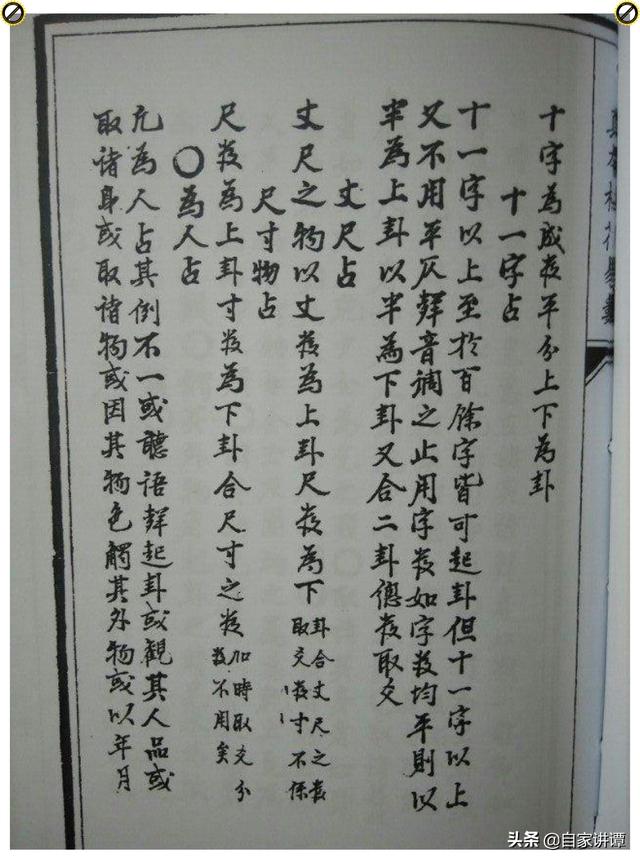 十字為成數平分上下為卦
十一字占
十一字以上至於百餘字皆可起卦但十一字以上
又不用平仄聲音調之止用字數如字數均平則以
半為上卦以半為下卦又合二卦總數取爻
丈尺占
丈尺之物以丈數為上卦尺數為下卦合丈尺之數取爻數寸不係
尺寸物占
尺數為上卦寸數為下卦合尺寸之數加時取爻分數不用矣
〇為人占
凡為人占其倒不一或聽語聲起卦或觀其人品或
取諸身或取諸物或因其物色觸其外物或以年月
头条 @自家讲谭